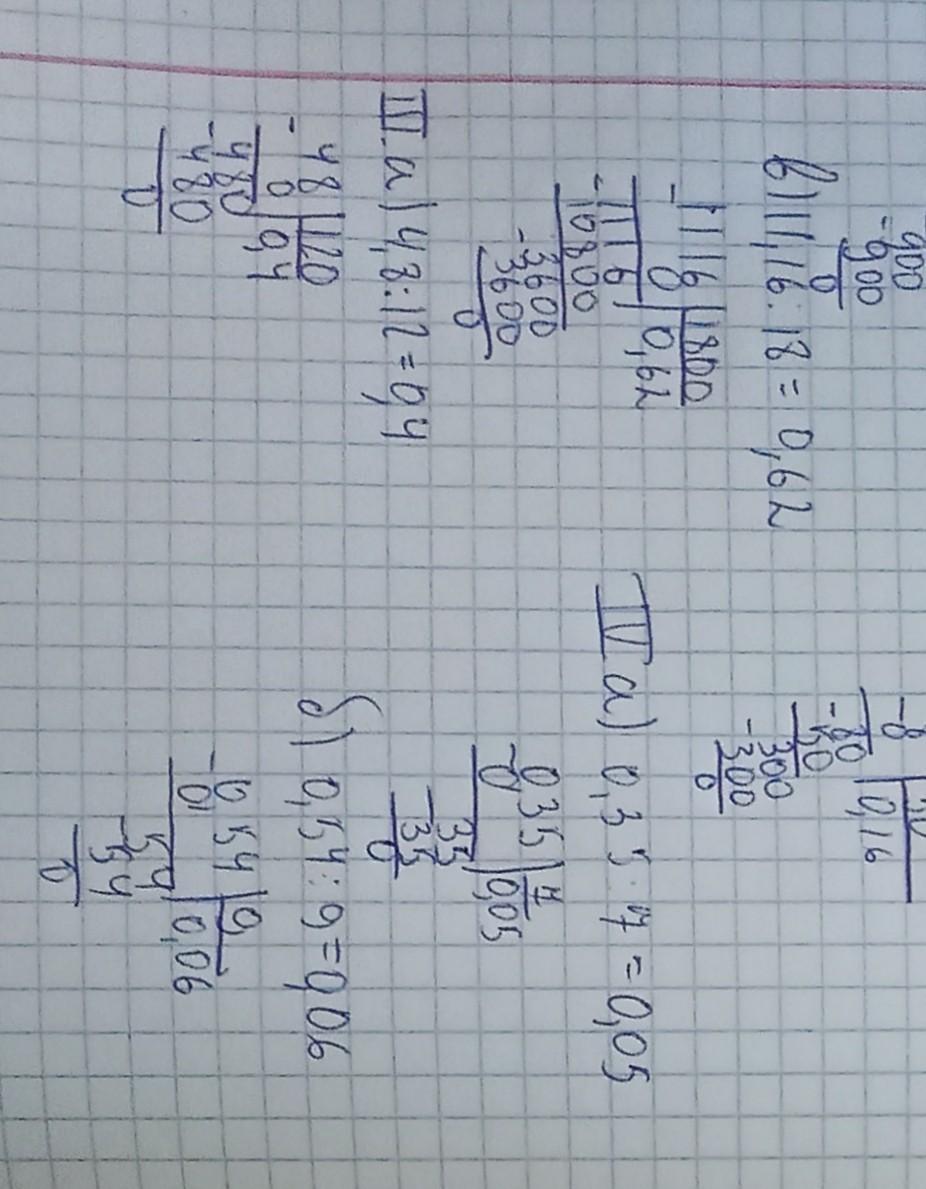 -900
-900
0
в) 11,16 : 18 = 0,62
-1116 | 1800
0 | 0,62
-11160
-10800
-3600
3600
0
III а) 4,8 : 12 = 0,4
-48 | 120
0 | 0,4
-480
-480
0
-8
0,16
-80
50
-300
-300
0
IV а) 0,35 : 7 = 0,05
-035 | 7
0 | 0,05
-35
35
0
б) 0,54 : 9 = 0,06
-054 | 9
0 | 0,06
-54
54
0